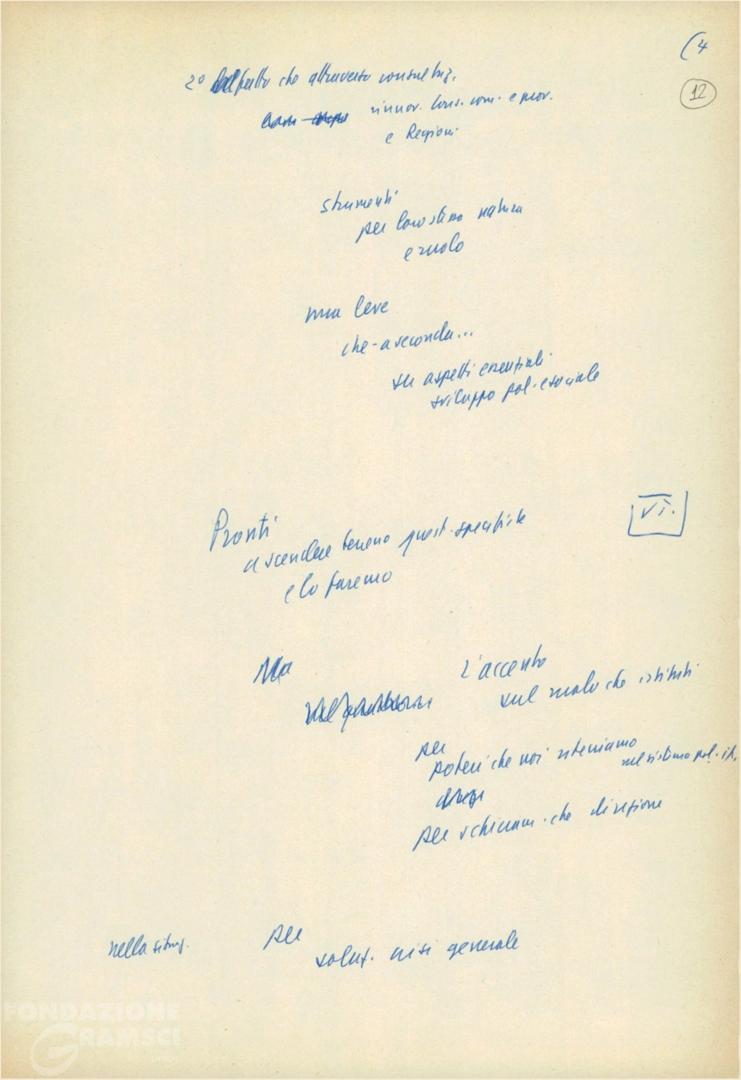 (4
12
2° dal fatto che attraverso consultaz.
rinnov. Cons. com. e prov.
e Regioni
strumenti
per loro stessa natura
e ruolo
una leva
che - a seconda...
su aspetti essenziali
sviluppo pol. e sociale
Pronti
a scendere terreno quest. specifiche
e lo faremo
VI.
Ma
L'accento
sul ruolo che istituti
per
poteri che noi riteniamo
nel sistema pol. it.
per schieram. che dirigono
nella situaz.
per
soluz. crisi generale
FONDAZIONE
GRAMSCI